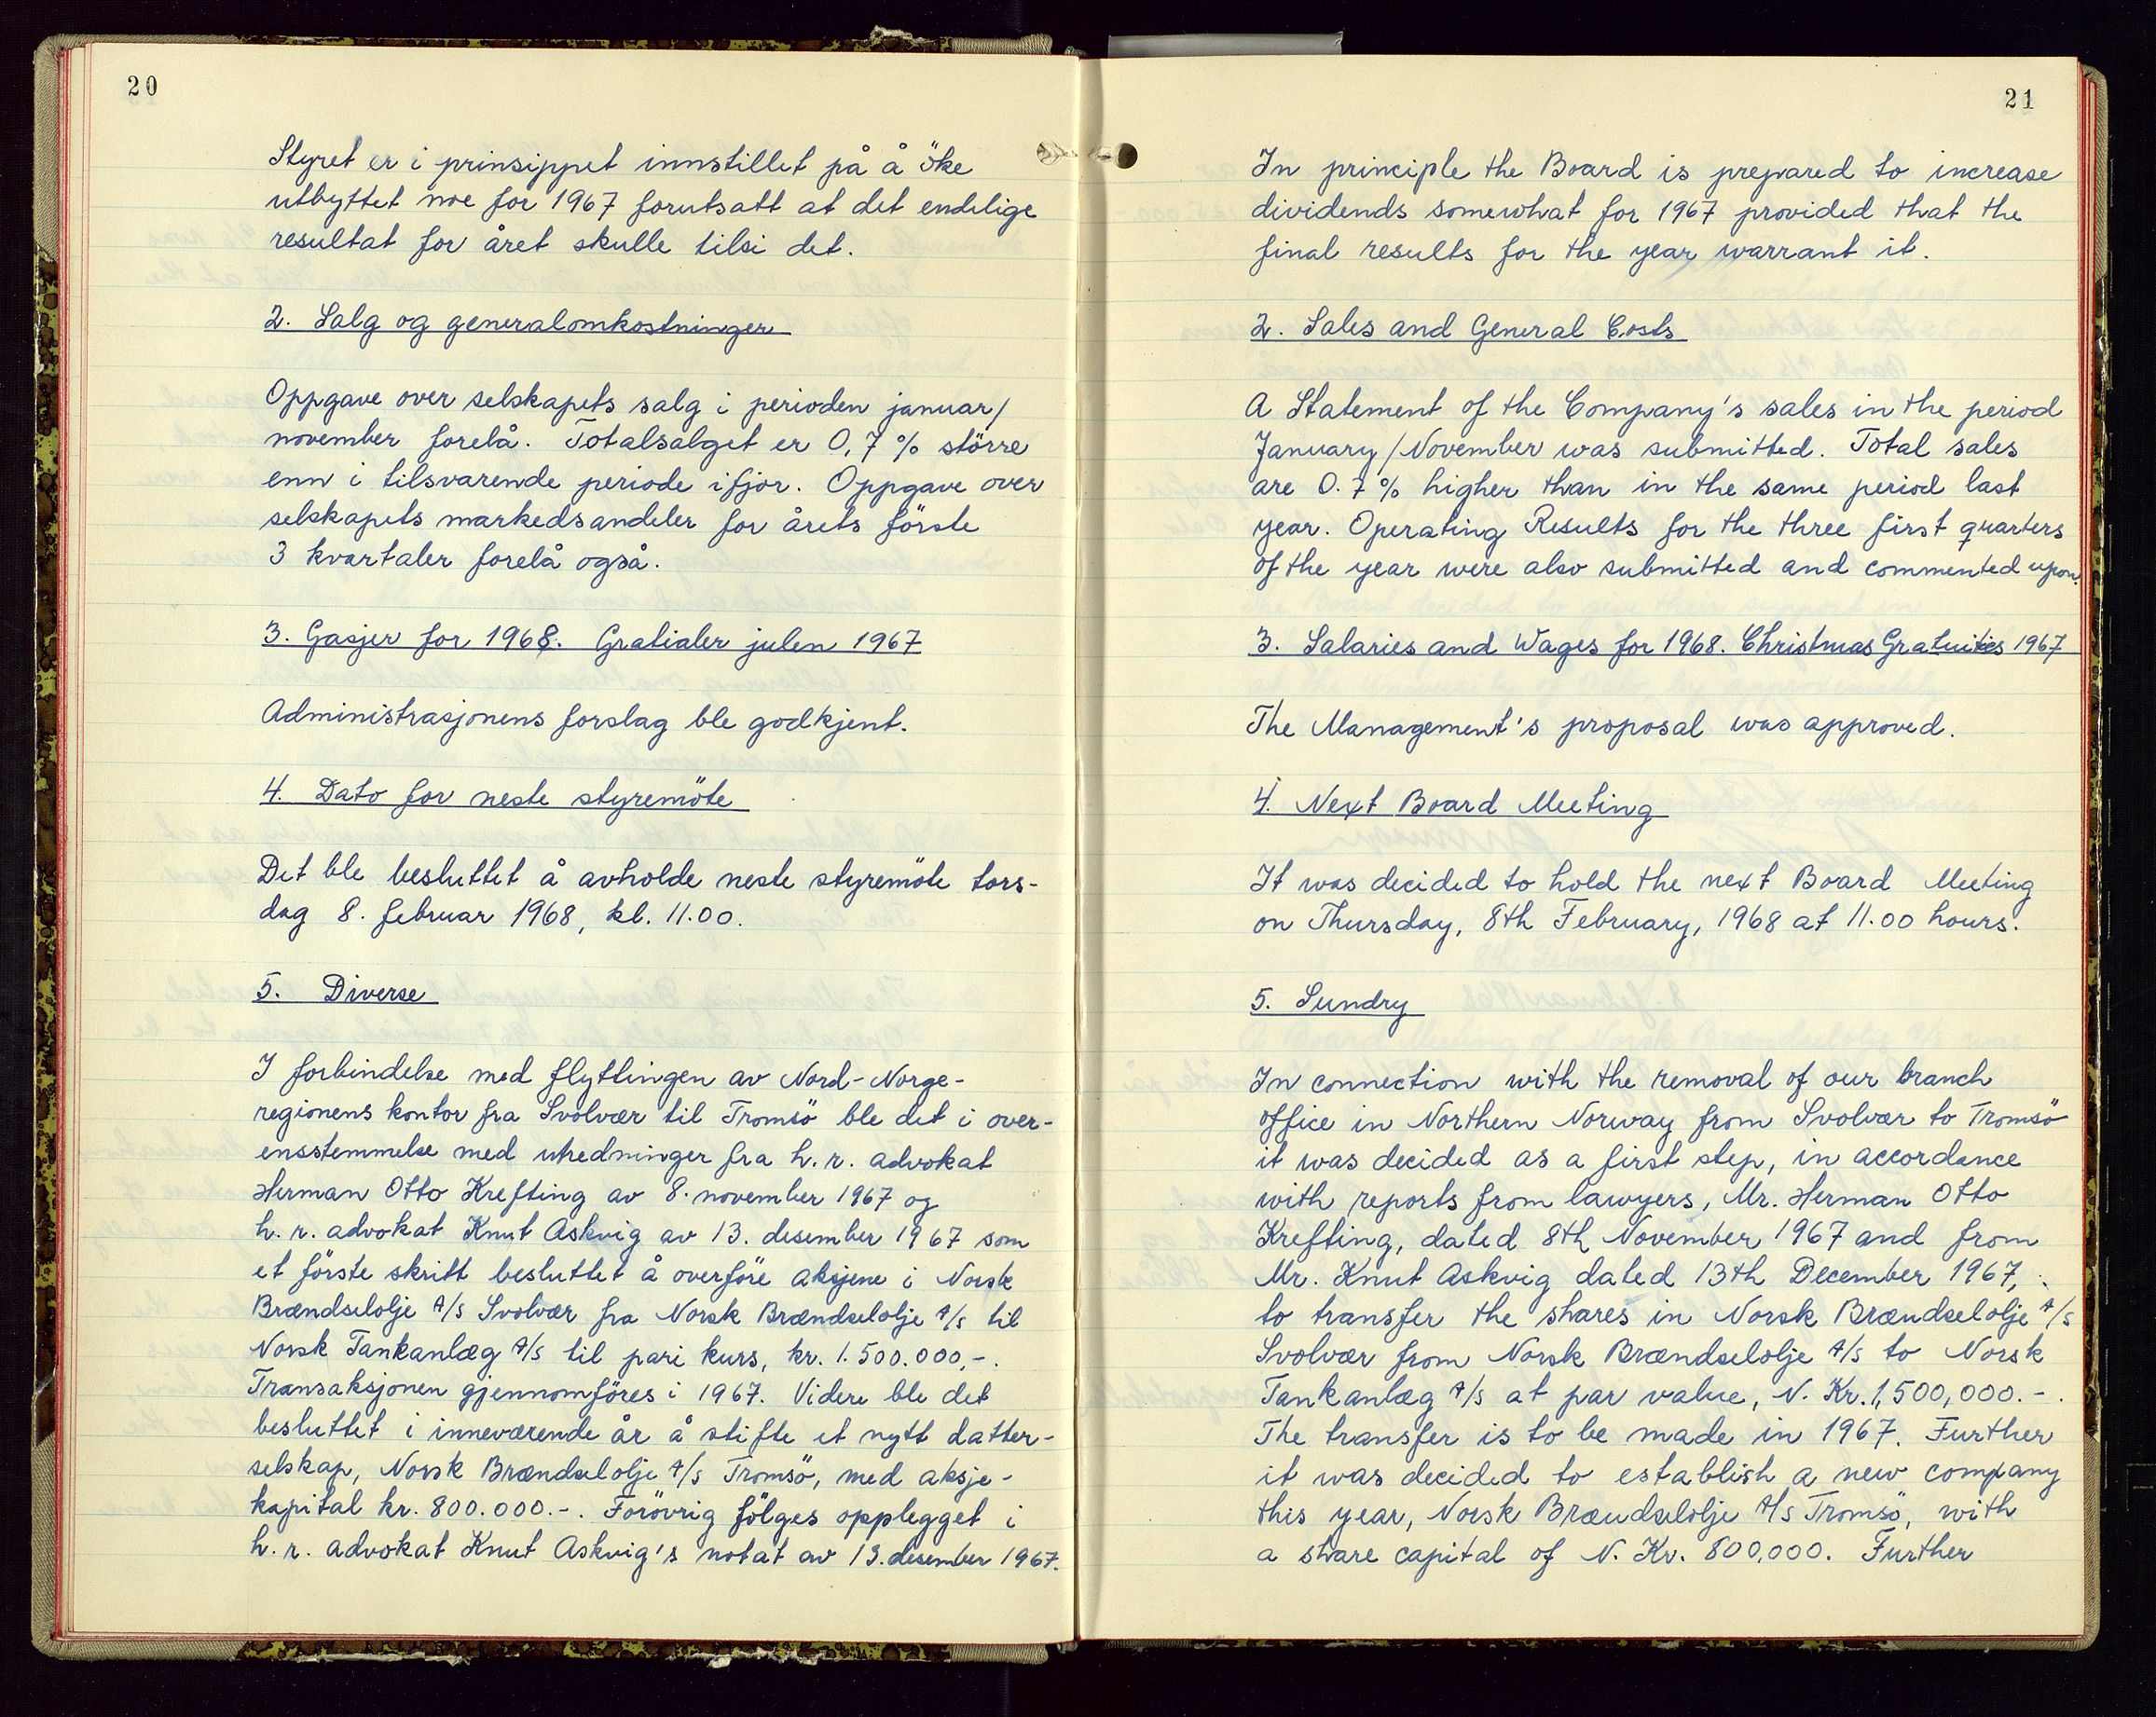 20
Styret er i prinsippet innstillet på å öke
utbyttet noe for 1967 forutsatt at det endelige
resultat for året skulle tilsi det.
2. Salg og generalomkostninger
Oppgave over selskapets salg i perioden januar/
november forelå. Totalsalget er 0,7 % större
enn i tilsvarende periode ifjor. Oppgave over
selskapets markedsandeler for årets förste
3 kvartaler forelå også.
3. Gasjer for 1968. Gratialer julen 1967
Administrasjonens forslag ble godkjent.
4. Dato for neste styremöte
Det ble besluttet å avholde neste styremöte tors-
dag 8. februar 1968, kl. 11.00.
5. Diverse
I forbindelse med flyttingen av Nord-Norge-
regionens kontor fra Svolvær til Tromsö ble det i over-
ensstemmelse med utredninger fra h.r. advokat
Herman Otto Krefting av 8. november 1967 og
h.r. advokat Knut Askvig av 13. desember 1967 som
et förste skritt besluttet å overföre aksjene i Norsk
Brændselolje A/S Svolvær fra Norsk Brændselolje A/S til
Norsk Tankanlæg A/S til pari kurs, kr. 1.500.000,-.
Transaksjonen gjennomföres i 1967. Videre ble det
besluttet i inneværende år å stifte et nytt datter-
selskap, Norsk Brændselolje A/S Tromsö, med aksje-
kapital kr. 800.000.-. Forövrig fölges opplegget i
h.r. advokat Knut Askvig's notat av 13. desember 1967.
21
In principle the Board is prepared to increase
dividends somewhat for 1967 provided that the
final results for the year warrant it.
2. Sales and General Costs
A Statement of the Company's sales in the period
January/November was submitted. Total sales
are 0.7 % higher than in the same period last
year. Operating Results for the three first quarters
of the year were also submitted and commented upon.
3. Salaries and Wages for 1968. Christmas Gratuities 1967
The Management's proposal was approved.
4. Next Board Meeting
It was decided to hold the next Board Meeting
on Thursday, 8th February, 1968 at 11.00 hours.
5. Sundry
In connection with the removal of our branch
office in Northern Norway from Svolvær to Tromsö
it was decided as a first step, in accordance
with reports from lawyers, Mr. Herman Otto
Krefting, dated 8th November 1967 and from
Mr. Knut Askvig dated 13th December 1967,
to transfer the shares in Norsk Brændselolje A/S
Svolvær from Norsk Brændselolje A/S to Norsk
Tankanlæg A/S at par value, N. Kr. 1,500,000.-.
The transfer is to be made in 1967. Further
it was decided to establish a new company
this year, Norsk Brændselolje A/S Tromsö, with
a share capital of N. Kr. 800,000. Further